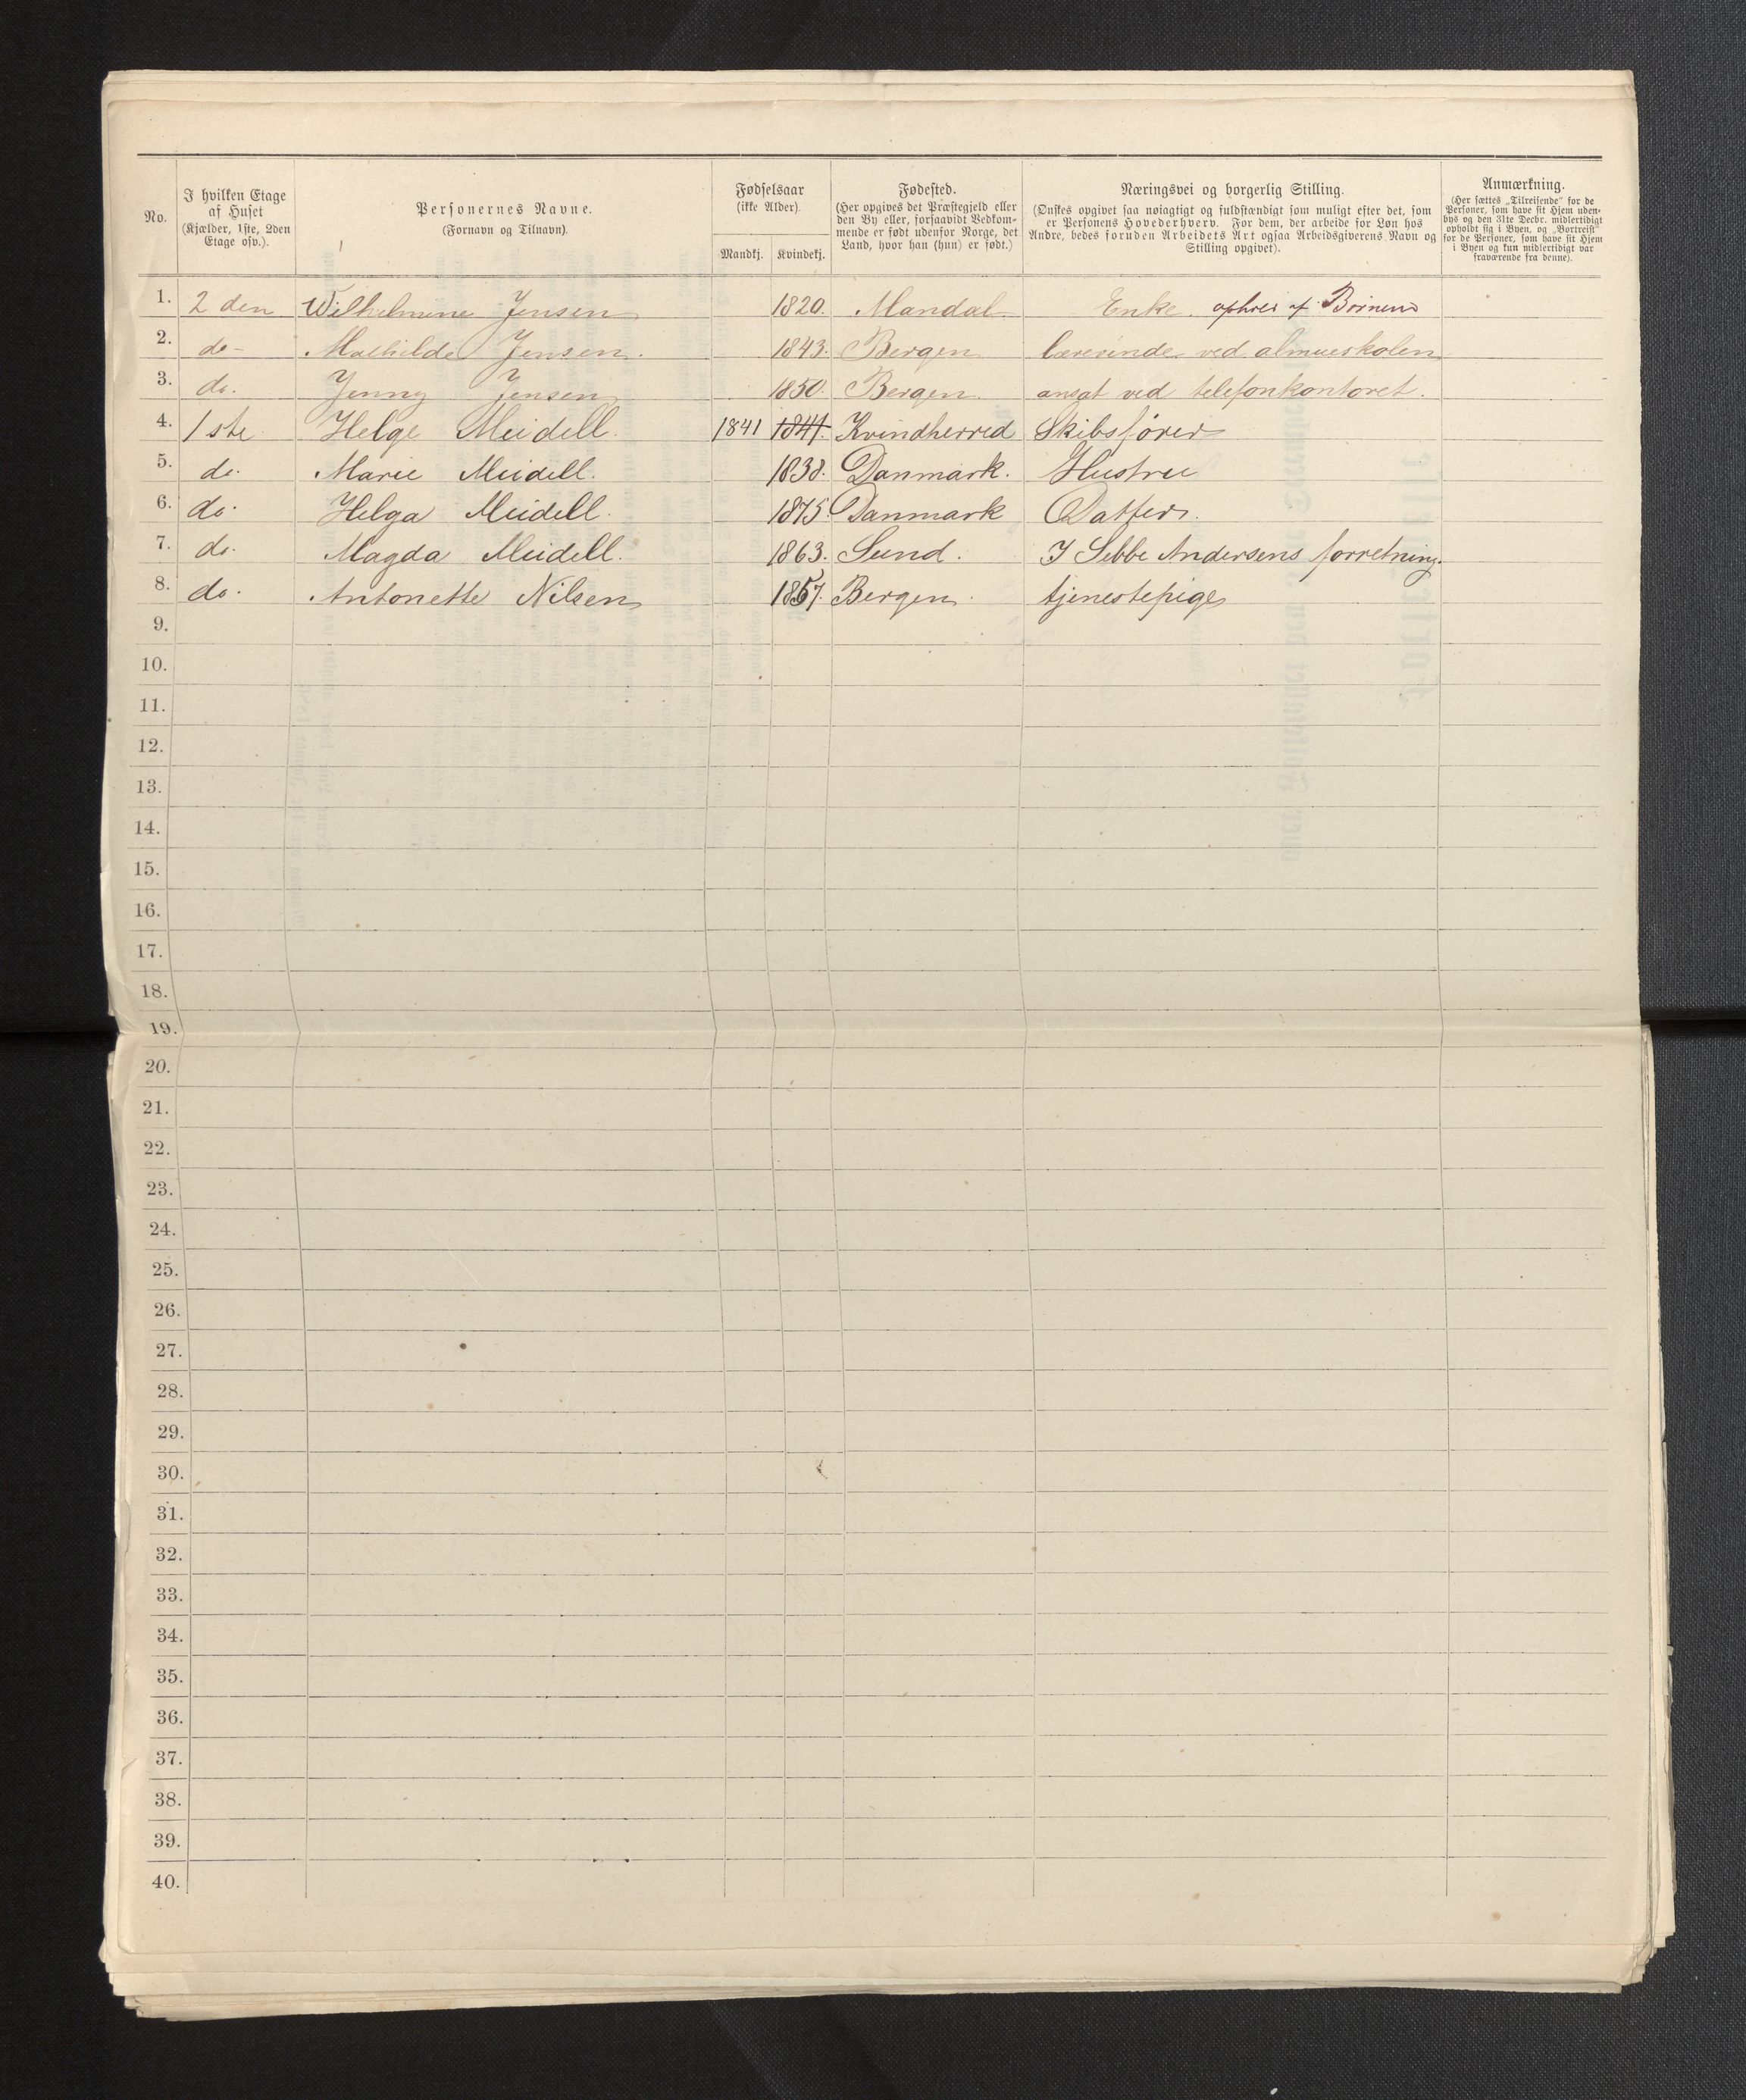 No.
I hvilken Etage
af Huset
(Kjælder, 1ste, 2den
Etage osv.).
Personernes Navne.
(Fornavn og Tilnavn).
Fødselsaar
(ikke Alder).
Mandkj. Kvindekj.
Fødested.
(Her opgives det Præstegjeld eller
den By eller, forsaavidt Vedkom-
mende er født udenfor Norge, det
Land, hvor han (hun) er født.)
Næringsvei og borgerlig Stilling.
(Ønskes opgivet saa nøiagtigt og fuldstændigt som muligt efter det, som
er Personens Hovederhverv. For dem, der arbeide for Løn hos
Andre, bedes foruden Arbeidets Art ogsaa Arbeidsgiverens Navn og
Stilling opgivet).
Anmærkning.
(Her sættes „Tilreisende“ for de
Personer, som have sit Hjem uden-
bys og den 31te Decbr. midlertidigt
opholdt sig i Byen, og „Bortreist“
for de Personer, som have sit Hjem
i Byen og kun midlertidigt var
fraværende fra denne).
1. 2 den Wilhelmine Jensen 1820. Mandal Enke af Børnene
2. do - Mathilde Jensen. 1843. Bergen lærerinde ved almueskolen
3. do. Jenny Jensen 1850. Bergen. ansat ved telefonkontoret.
4. 1 ste Helge Meidell. 1841 1841. Kvindherred Skibsfører
5. do. Marie Meidell. 1838. Danmark. Hustru
6. do. Helga Meidell. 1875. Danmark Datter.
7. do. Magda Meidell. 1863. Sund. I Sebbe Andersens forretning.
8. do. Antonette Nilsen 1857. Bergen. tjenestepige
9.
10.
11.
12.
13.
14.
15.
16.
17.
18.
19.
20.
21.
22.
23.
24.
25.
26.
27.
28.
29.
30.
31.
32.
33.
34.
35.
36.
37.
38.
39.
40.